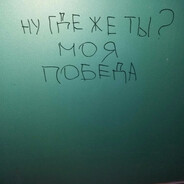 НУ ГДЕ ЖЕ ТЫ?
МОЯ
ПОБЕДА